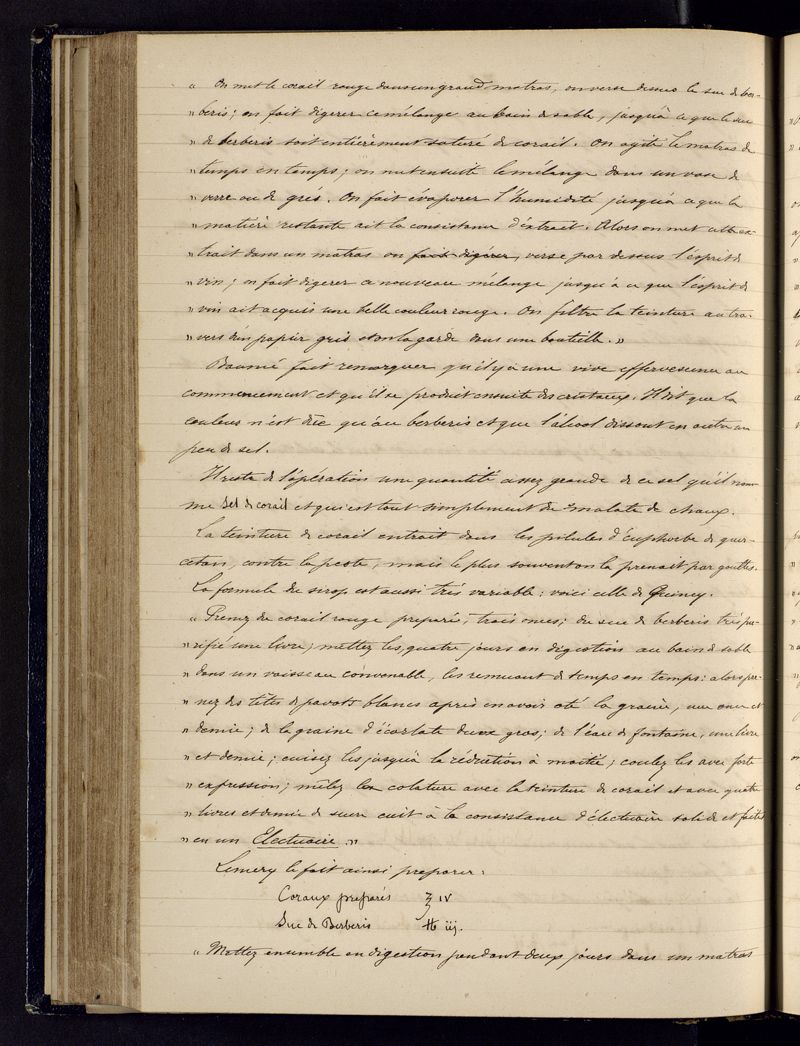 « On met le corail rouge dans un grand matras, on verse dessus le suc de ber-
» beris; on fait digerer ce mélange au bain de sable, jusqu'à ce que le suc
» de berberis soit entièrement saturé de corail. On agite le matras de
» temps en temps; on met ensuite le mélange dans un vase de
» verre ou de grés. On fait évaporer l'humidité jusqu'à ce que la
» matière restante ait la consistance d'extrait. Alors on met cet ex-
» trait dans un matras on fait digérer, verse par dessus l'esprit de
» vin; on fait digerer ce nouveau mélange jusqu'à ce que l'esprit de
» vin ait acquis une belle couleur rouge. On filtre la teinture au tra-
» vers d'un papier gris et on la garde dans une bouteille. »
Baumé fait remarquer qu'il y a une vive effervescence au
commencement et qu'il se produit ensuite des cristaux. Il dit que la
couleur n'est dûe qu'au berberis et que l'alcool dissout en outre un
peu de sel.
Il reste de l'opération une quantité assez grande de ce sel qu'il nom-
me Sel de corail et qui est tout simplement du malate de chaux.
La teinture de corail entrait dans les pilules d'Euphorbe de quer-
cetan, contre la peste, mais le plus souvent on la prenait par gouttes.
La formule du sirop est aussi très variable: voici celle de Quincy.
« Prenez du corail rouge preparé, trois onces; du suc de berberis très pu-
» rifié une livre; mettez les quatre jours en digestion au bain de sable
» dans un vaisseau convenable, les remuant de temps en temps: alors pre-
» nez des têtes de pavots blancs après en avoir oté la graine, une once et
» demie; de la graine d'écarlate deux gros; de l'eau de fontaine, une livre
» et demie; cuisez les jusqu'à la réduction à moitié; coulez les avec forte
» expression; mêlez la colature avec la teinture de corail et avec quatre
» livres et demie de sucre cuit à la consistance d'électuaire solide et faites
» en un Electuaire. »
Lemery le fait ainsi preparer:
Coraux preparés ℥ iv
Suc de Berberis ℔ iij.
« Mettez ensemble en digestion pendant deux jours dans un matras